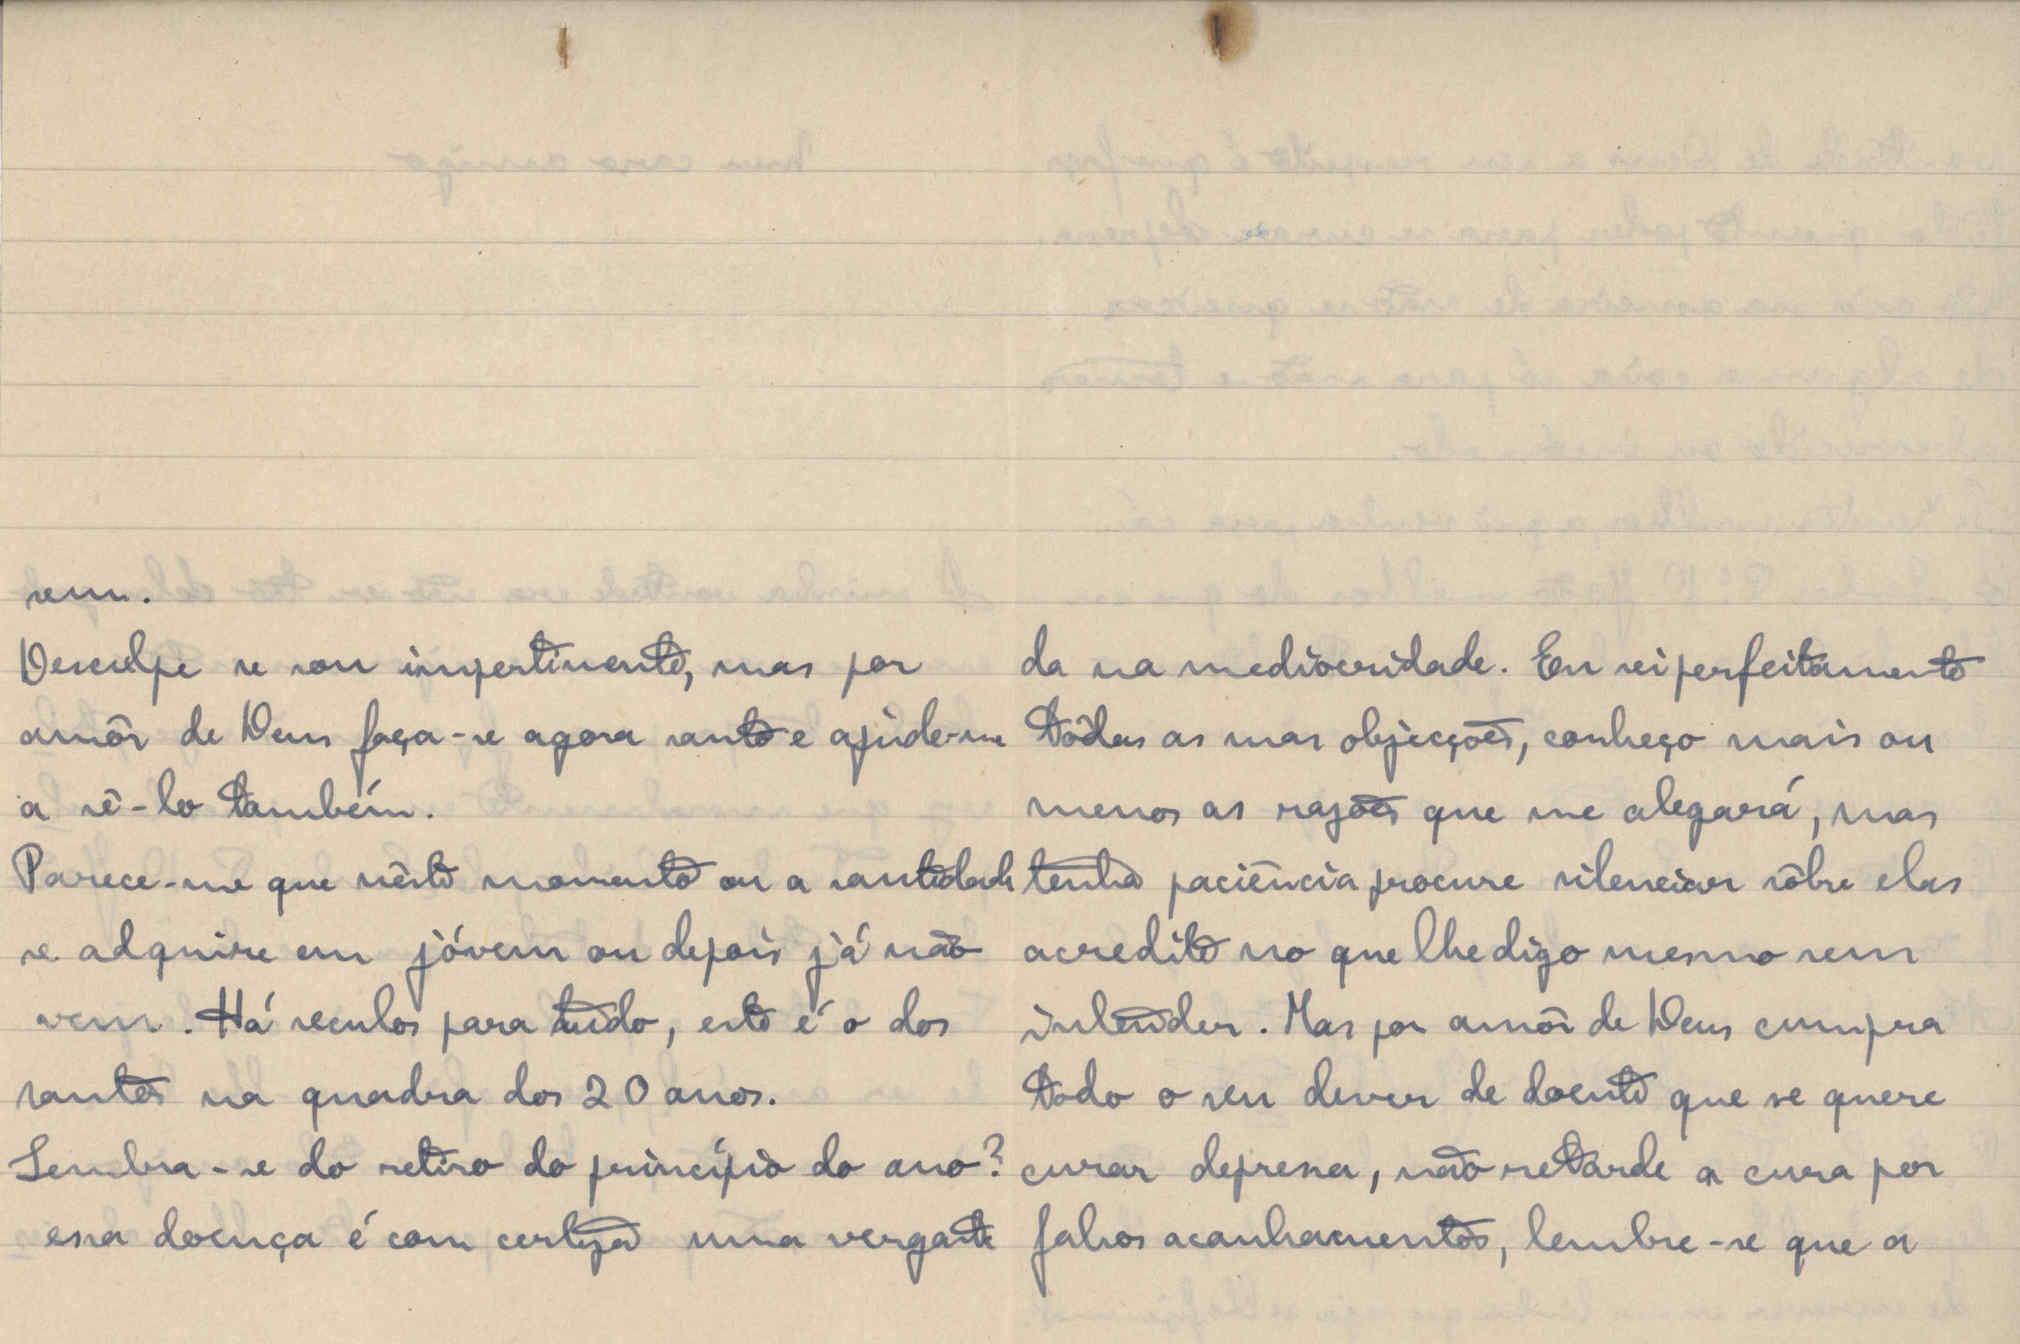 sem.
Desculpe se sou impertinente, mas por
amôr de Deus faça-se agora santo e ajude-me
a sê-lo também.
Parece-me que nêste momento ou a santidade
se adquire em jóvem ou depois já não
vem. Há seculos para tudo, este é o dos
santos na quadra dos 20 anos.
Lembra-se do retiro do princípio do ano?
essa doença é com certeza uma vergasta
da na mediocridade. Eu sei perfeitamente
tôdas as suas objecções, conheço mais ou
menos as razões que me alegará, mas
tenha paciência procure silenciar sôbre elas
acredite no que lhe digo mesmo sem
intender. Mas por amôr de Deus cumpra
todo o seu dever de doente que se quere
curar depressa, não retarde a cura por
falsos acanhamentos, lembre-se que a